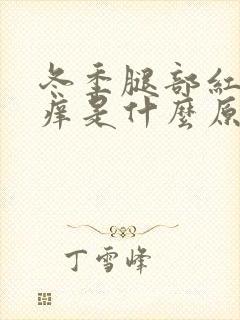 冬季腿部紅
痒是什麼原
丁雪峰